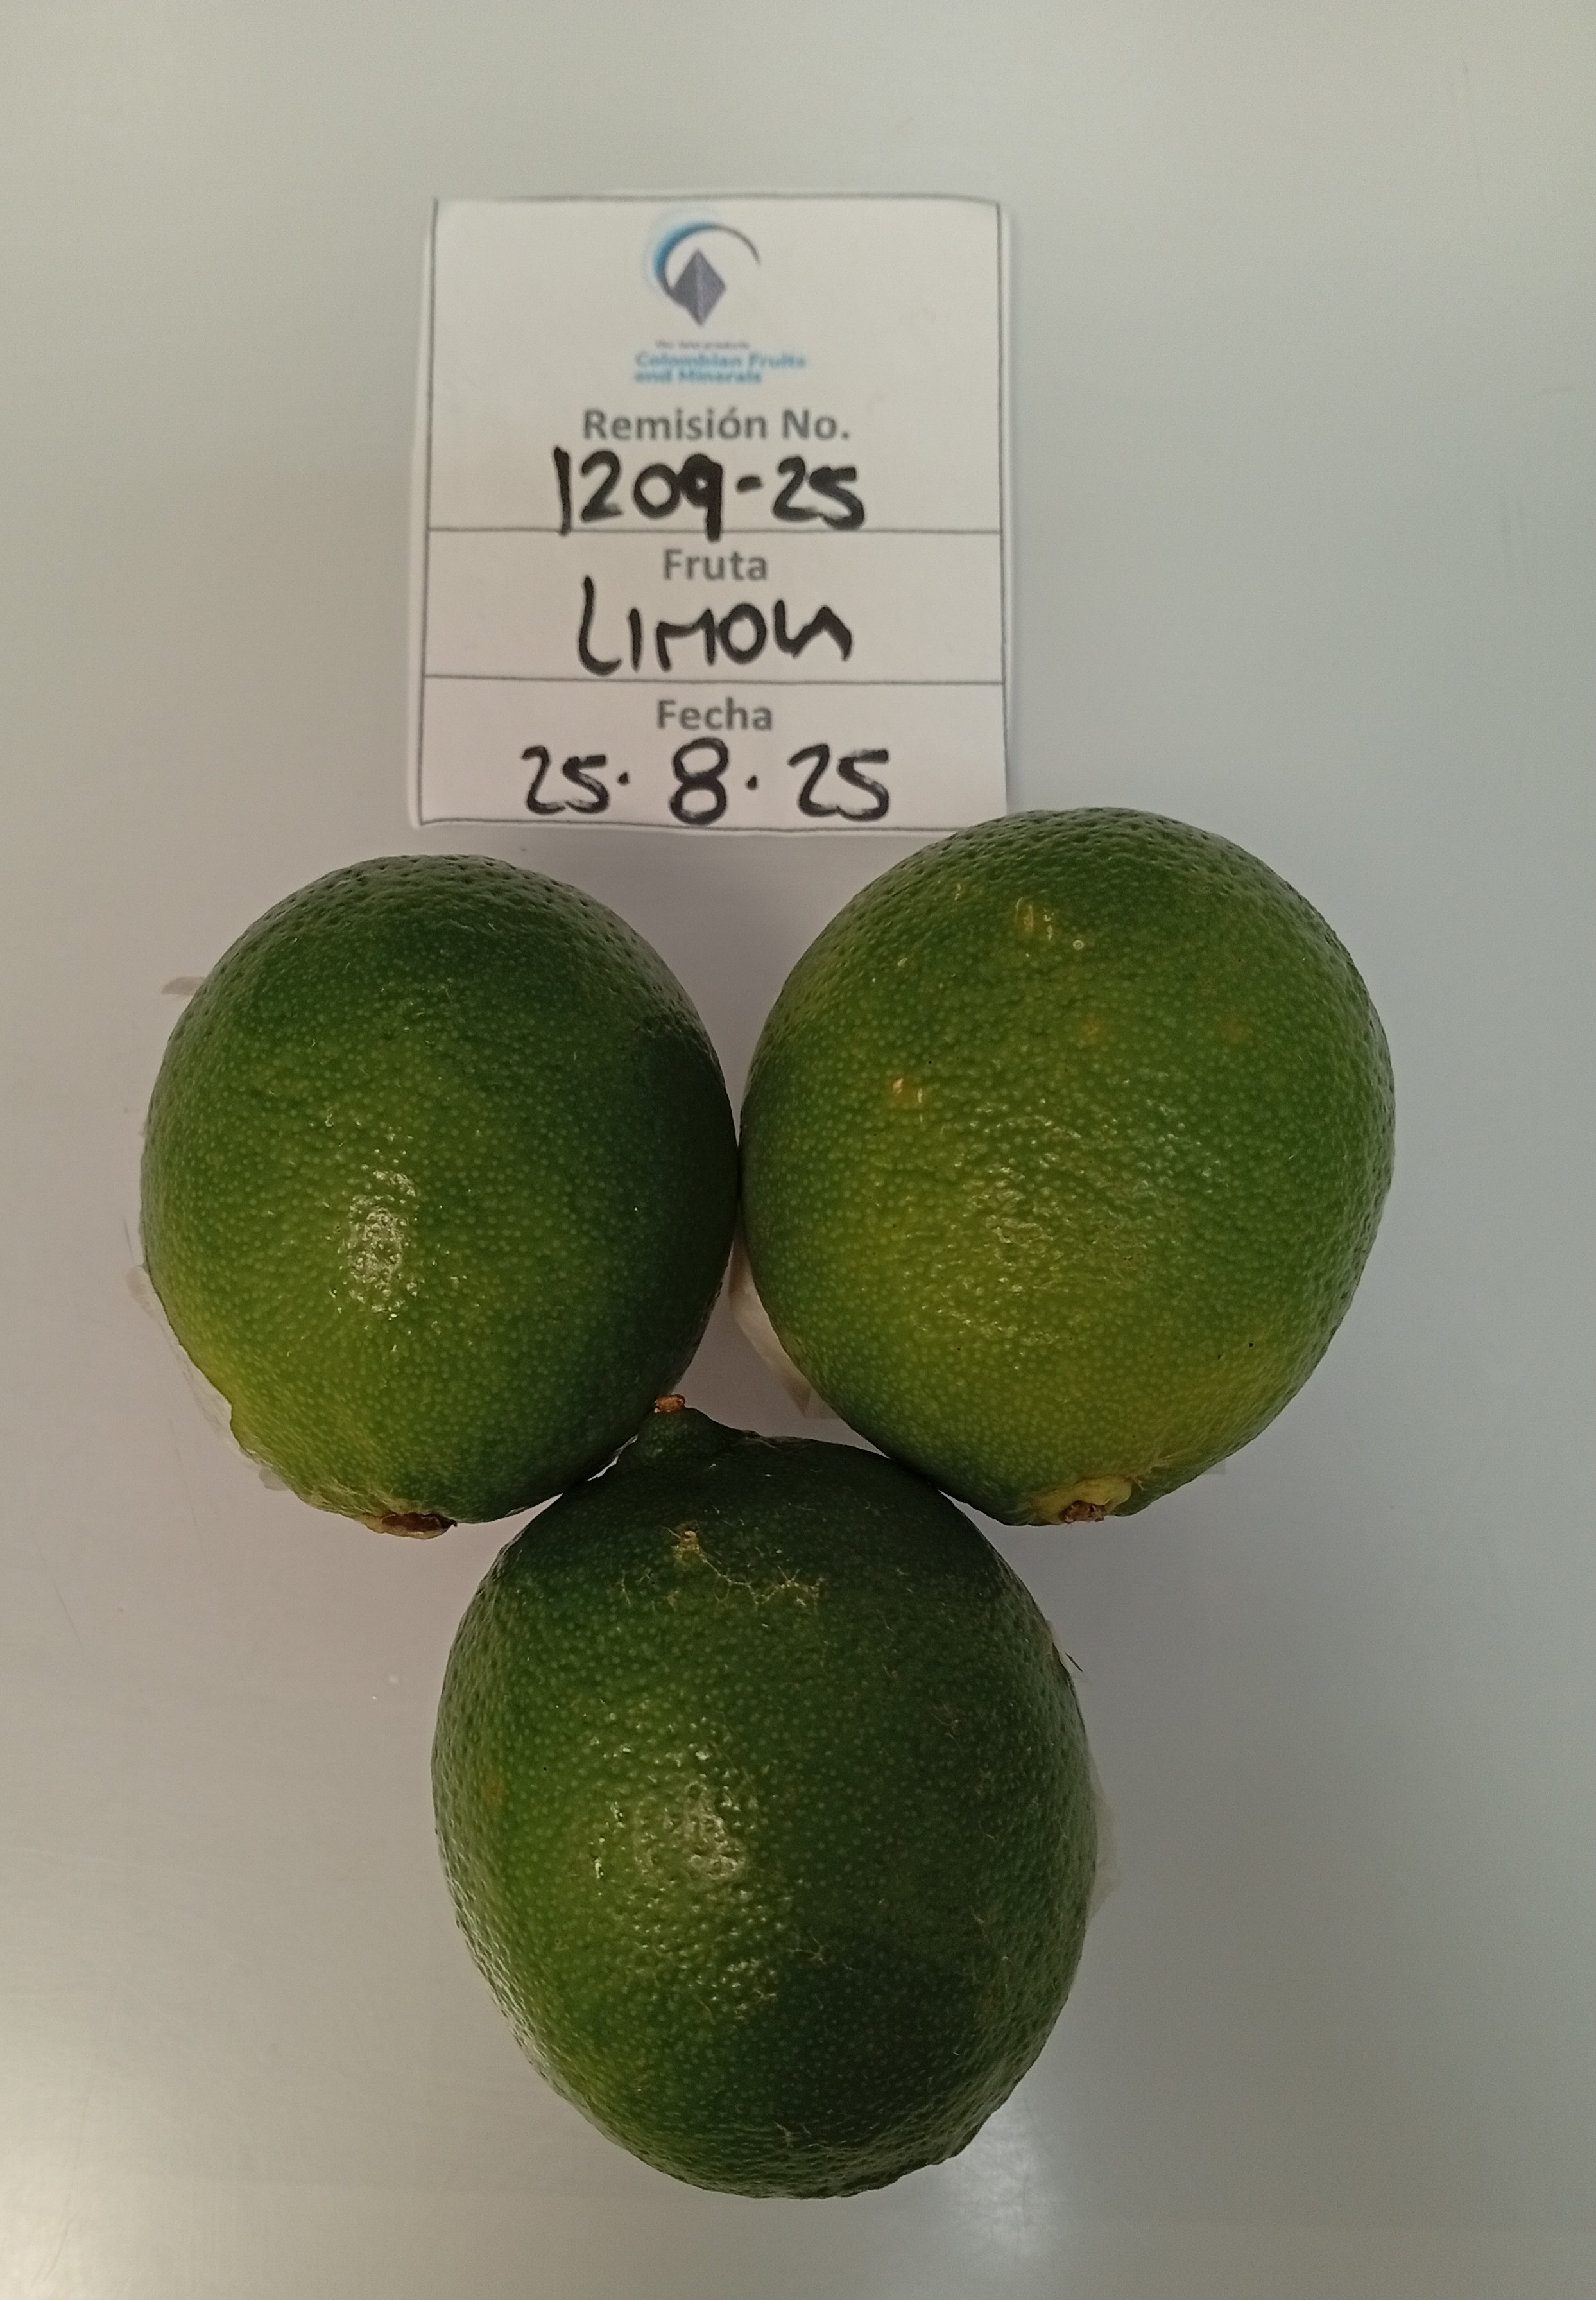 Colombian Fruits
and Minerals
Remisión No.
1209-25
Fruta
LIMON
Fecha
25.8.25